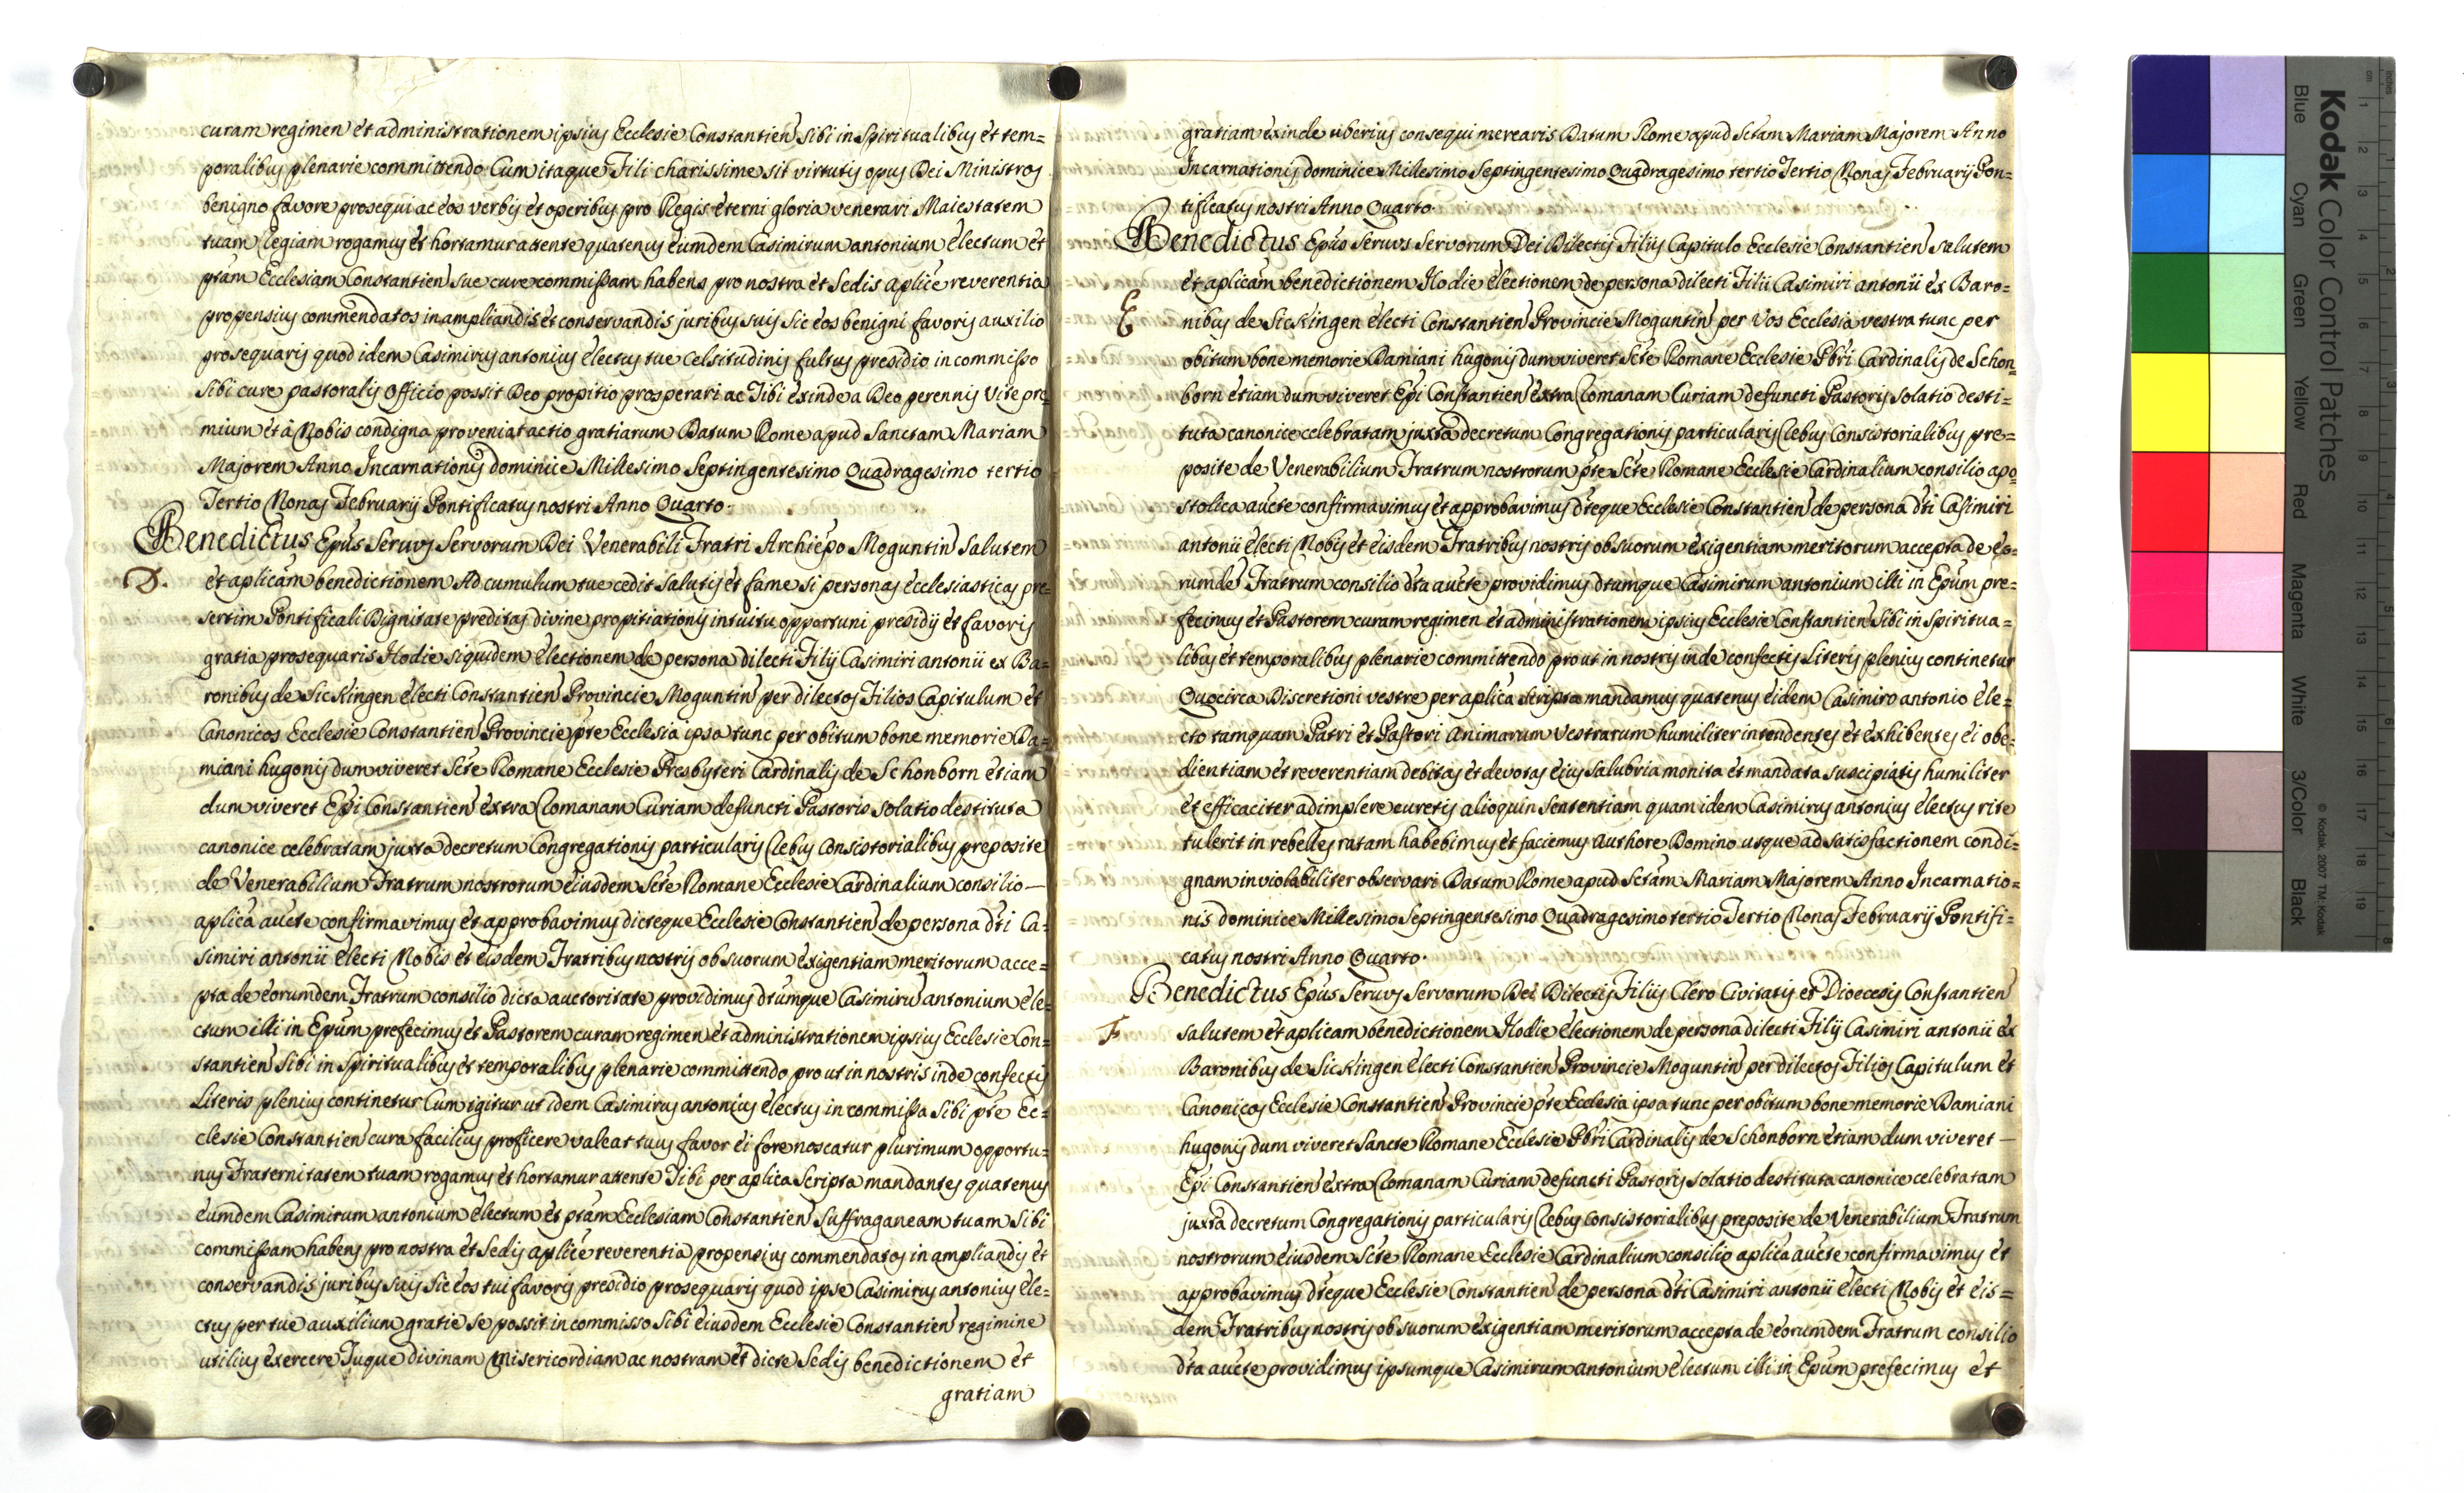 curam regimen et administrationem ipsius Ecclesie Constantien sibi in Spiritualibus et tem=
poralibus plenarie committendo Cum itaque Fili charissime sit virtutis opus Dei Ministros
benigno favore prosequi ac eos verbis et operibus pro Regis eterni gloria venerari Maiestatem
tuam Regiam rogamus et hortamur attente quatenus eumdem Casimirum antonium electum et
ptam Ecclesiam Constantien sue cure commissam habens pro nostra et Sedis aplice reverentia
propensius commendatos in ampliandis et conservandis juribus suis sic eos benigni favoris auxilio
prosequaris quod idem Casimirus antonius electus tue Celsitudinis fultus presidio in commisso
sibi cure pastoralis officio possit Deo propitio prosperari ac Tibi exinde a Deo perennis vite pre=
mium et à Nobis condigna proveniat actio gratiarum Datum Rome apud Sanctam Mariam
Majorem Anno Incarnationis dominice Millesimo Septingentesimo Quadragesimo tertio
Tertio Nonas Februarij Pontificatus nostri Anno Quarto.
Benedictus Epus Servus Servorum Dei Venerabili Fratri Archiepo Moguntin salutem
D.
et aplicam benedictionem Ad cumulum tue cedit salutis et fame si personas ecclesiasticas pre=
sertim Pontificali Dignitate preditas divine propitiationis intuitu opportuni presidij et favoris
gratia prosequaris Hodie siquidem electionem de persona dilecti Filij Casimiri antonii ex Ba=
ronibus de Sickingen electi Constantien Provincie Moguntin per dilectos Filios Capitulum et
Canonicos Ecclesie Constantien Provincie pte Ecclesia ipsa tunc per obitum bone memorie Da=
miani hugonis dum viveret Scte Romane Ecclesie Presbyteri Cardinalis de Schonborn etiam
dum viveret Epi Constantien extra Romanam Curiam defuncti Pastoris solatio destituta
canonice celebratam juxta decretum Congregationis particularis Rebus Consistorialibus preposite
de Venerabilium Fratrum nostrorum eiusdem Scte Romane Ecclesie Cardinalium consilio —
aplica aucte confirmavimus et approbavimus dicteque Ecclesie Constantien de persona dti Ca=
simiri antonii electi Nobis et eisdem Fratribus nostris ob suorum exigentiam meritorum acce=
pta de eorumdem Fratrum consilio dicta auctoritate providimus dtumque Casimiru antonium ele=
ctum illi in Epum prefecimus et Pastorem curam regimen et administrationem ipsius Ecclesie Con=
stantien sibi in Spiritualibus et temporalibus plenarie committendo prout in nostris inde confectis
Literis plenius continetur Cum igitur ut idem Casimirus antonius electus in commissa sibi pte Ec=
clesie Constantien cura facilius proficere valeat tuus favor ei fore noscatur plurimum opportu=
nus Fraternitatem tuam rogamus et hortamur attente Tibi per aplica Scripta mandantes quatenus
eumdem Casimirum antonium electum et ptam Ecclesiam Constantien Suffraganeam tuam sibi
commissam habens pro nostra et Sedis aplice reverentia propensius commendatos in ampliandis et
conservandis juribus suis sic eos tui favoris presidio prosequaris quod ipse Casimirus antonius ele=
ctus per tue auxilium gratie se possit in commisso sibi eiusdem Ecclesie Constantien regimine
utilius exercere Tuque divinam misericordiam ac nostram et dicte Sedis benedictionem et
gratiam
gratiam exinde uberius consequi merearis Datum Rome apud Sctam Mariam Majorem Anno
Incarnationis dominice Millesimo Septingentesimo Quadragesimo tertio Tertio Nonas Februarij Pon=
tificatus nostri Anno Quarto.
Benedictus Epus Servus Servorum Dei Dilectis Filijs Capitulo Ecclesie Constantien salutem
et aplicam benedictionem Hodie electionem de persona dilecti Filii Casimiri antonii ex Baro=
E
nibus de Sickingen electi Constantien Provincie Moguntin per Vos Ecclesia vestra tunc per
obitum bone memorie Damiani hugonis dum viveret Scte Romane Ecclesie Pbri Cardinalis de Schon=
born etiam dum viveret Epi Constantien extra Romanam Curiam defuncti Pastoris solatio desti=
tuta canonice celebratam juxta decretum Congregationis particularis Rebus Consistorialibus pre=
posite de Venerabilium Fratrum nostrorum pte Scte Romane Ecclesie Cardinalium consilio apo=
stolica aucte confirmavimus et approbavimus dteque Ecclesie Constantien de persona dti Casimiri
antonii electi Nobis et eisdem Fratribus nostris ob suorum exigentiam meritorum accepta de eo=
rumde Fratrum consilio dta aucte providimus dtumque Casimirum antonium illi in Epum pre=
fecimus et Pastorem curam regimen et administrationem ipsius Ecclesie Constantien sibi in Spiritua=
libus et temporalibus plenarie committendo prout in nostris inde confectis Literis plenius continetur
Quocirca Discretioni vestre per aplica scripta mandamus quatenus eidem Casimiro antonio ele=
cto tamquam Patri et Pastori Animarum Vestrarum humiliter intendentes et exhibentes ei obe=
dientiam et reverentiam debitas et devotas eius salubria monita et mandata suscipiatis humiliter
et efficaciter adimplere curetis alioquin sententiam quam idem Casimirus antonius electus rite
tulerit in rebelles ratam habebimus et faciemus authore Domino usque ad satisfactionem condi=
gnam inviolabiliter observari Datum Rome apud Sctam Mariam Majorem Anno Incarnatio=
nis dominice Millesimo Septingentesimo Quadragesimo tertio Tertio Nonas Februarij Pontifi=
catus nostri Anno Quarto.
Benedictus Epus Servus Servorum Dei Dilectis Filijs Clero Civitatis et Dioecesis Constantien
F
salutem et aplicam benedictionem Hodie electionem de persona dilecti Filij Casimiri antonii ex
Baronibus de Sickingen electi Constantien Provincie Moguntin per dilectos Filios Capitulum et
Canonicos Ecclesie Constantien Provincie pte Ecclesia ipsa tunc per obitum bone memorie Damiani
hugonis dum viveret Sancte Romane Ecclesie Pbri Cardinalis de Schonborn etiam dum viveret —
Epi Constantien extra Romanam Curiam defuncti Pastoris solatio destituta canonice celebratam
juxta decretum Congregationis particularis Rebus Consistorialibus preposite de Venerabilium Fratrum
nostrorum eiusdem Scte Romane Ecclesie Cardinalium consilio aplica aucte confirmavimus et
approbavimus dteque Ecclesie Constantien de persona dti Casimiri antonii electi Nobis et eis=
dem Fratribus nostris ob suorum exigentiam meritorum accepta de eorumdem Fratrum consilio
dta aucte providimus ipsumque Casimirum antonium electum illi in Epum prefecimus et
Kodak Color Control Patches
Blue Cyan Green Yellow Red Magenta White 3/Color Black
© Kodak, 2007 TM: Kodak
cm 1 2 3 4 5 6 7 8 9 10 11 12 13 14 15 16 17 18 19
inches 1 2 3 4 5 6 7 8